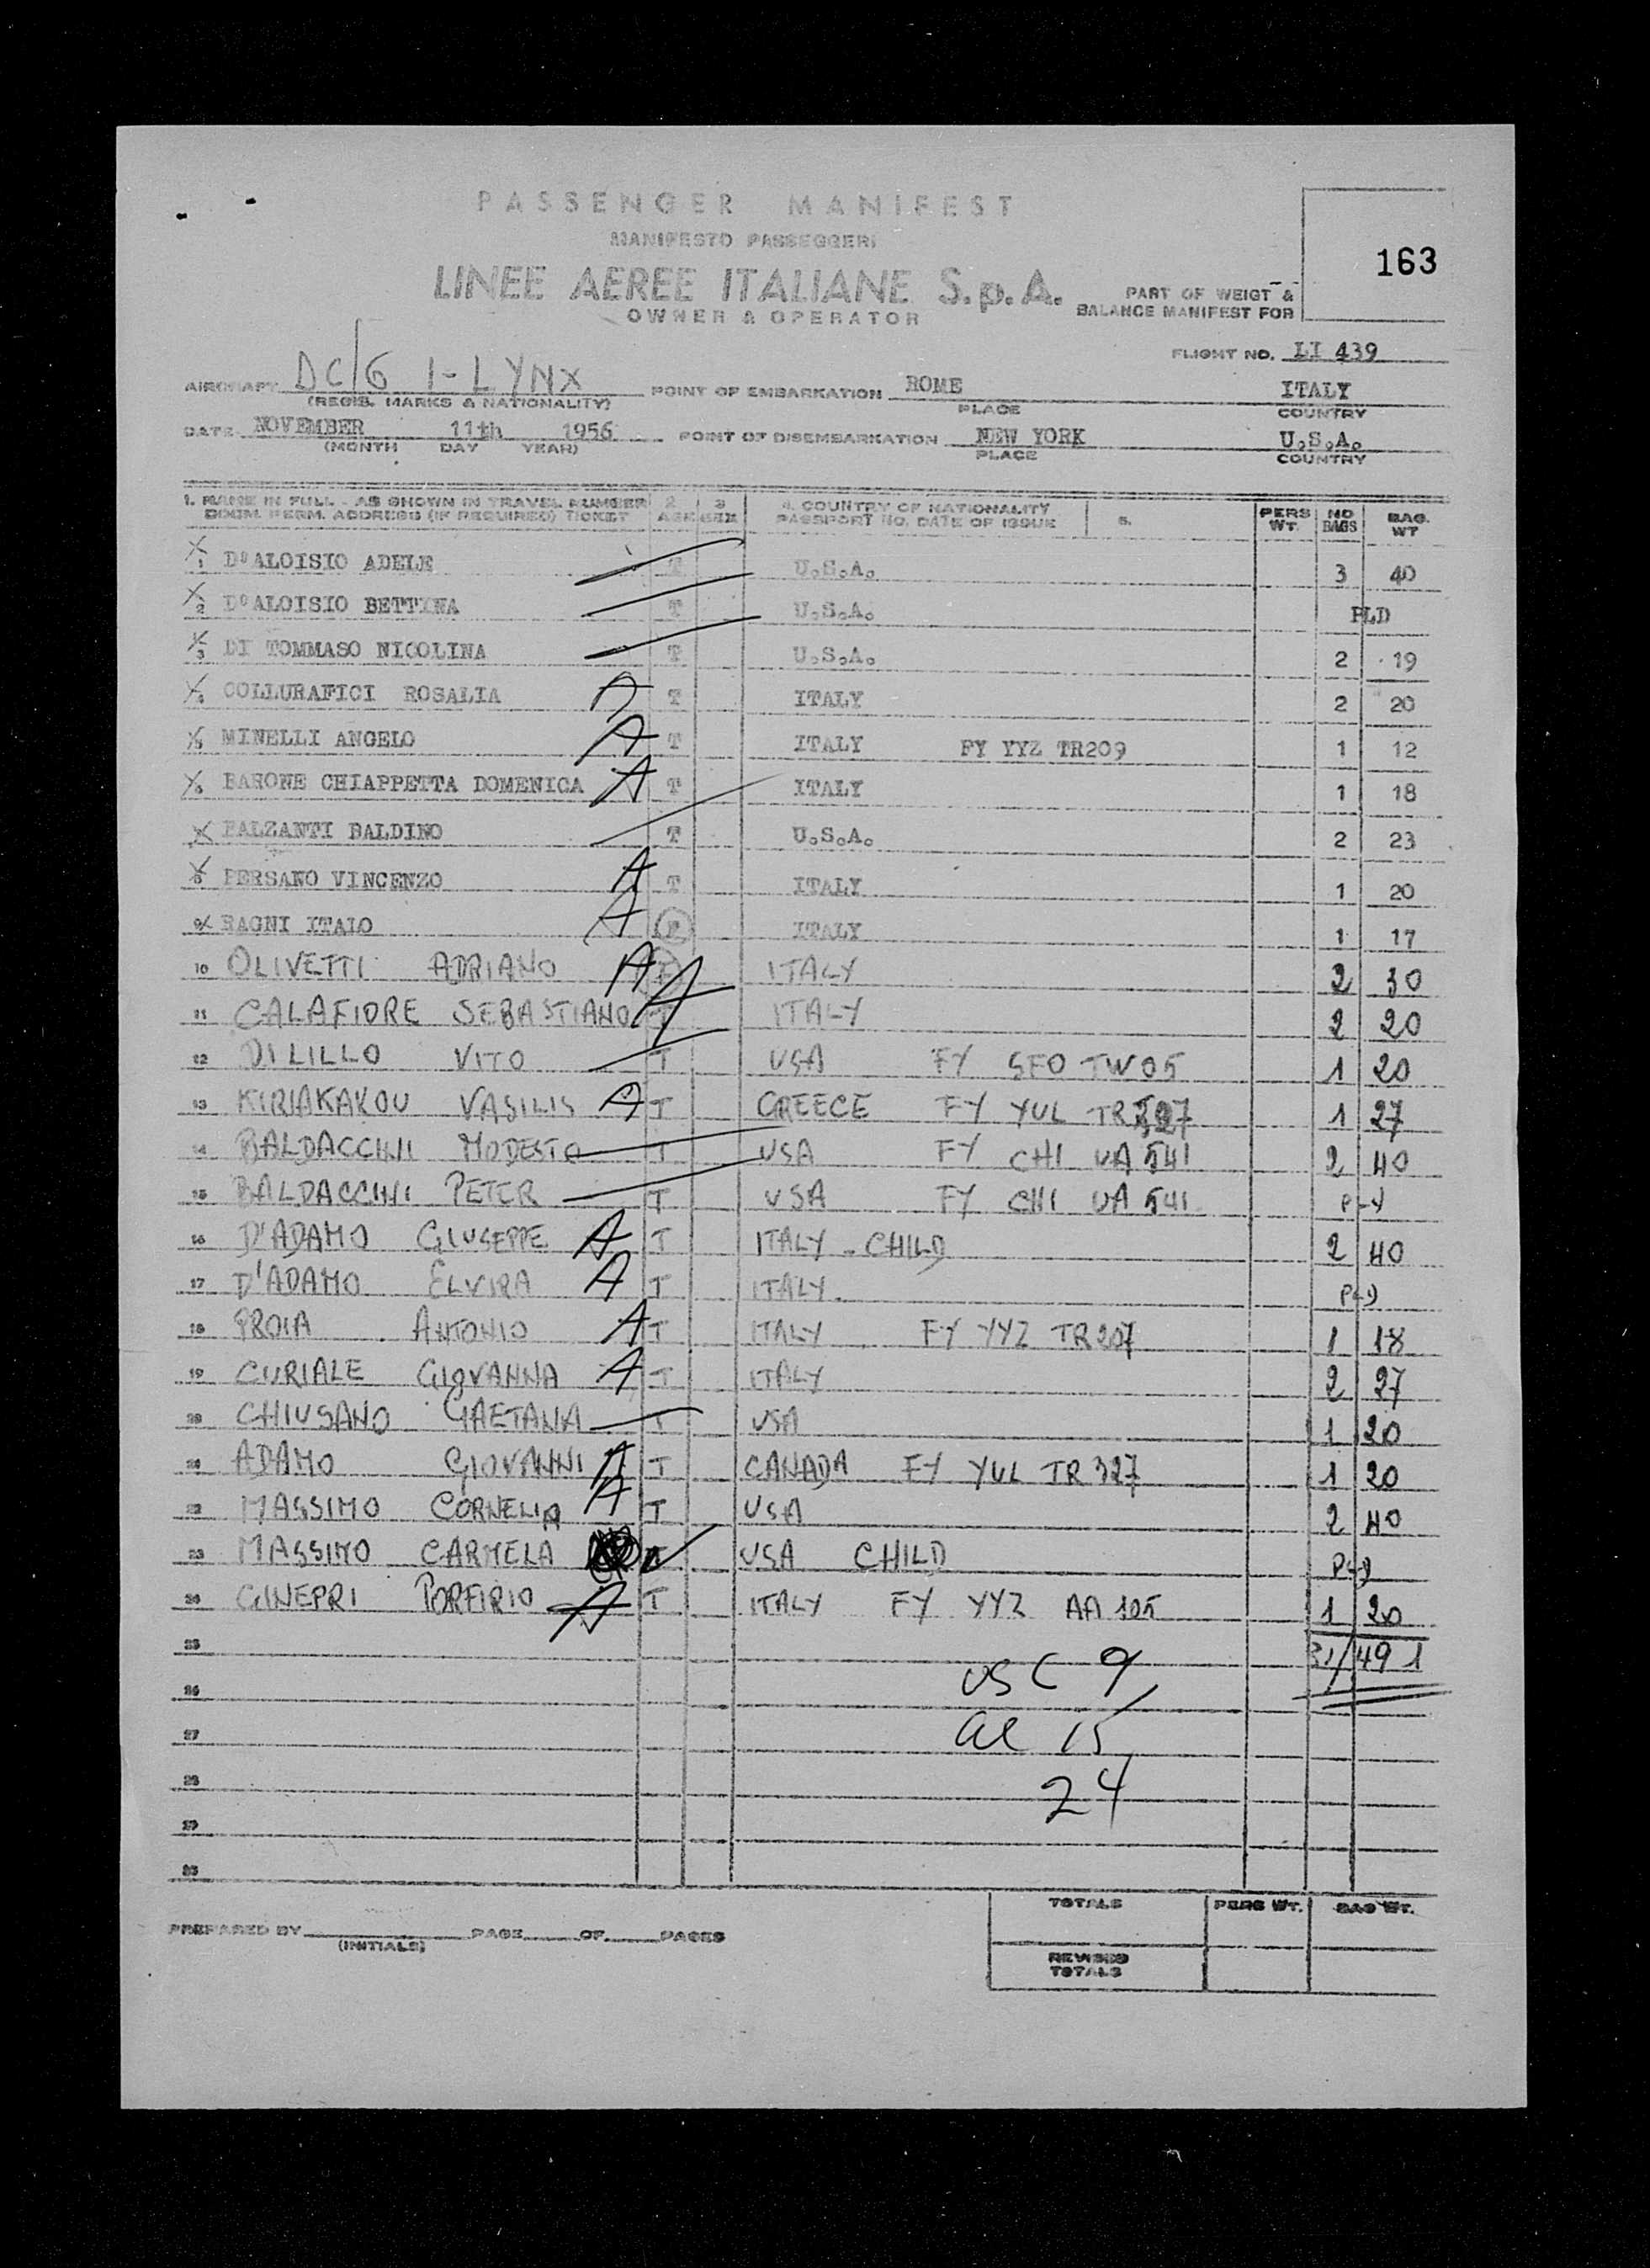 PASSENGER MANIFEST
MANIFESTO PASSEGGERI
LINEE AEREE ITALIANE S.p.A.
OWNER & OPERATOR
PART OF WEIGT &
BALANCE MANIFEST FOR
163
FLIGHT NO. LI 439
AIRCRAFT DC/6 I-LYNX POINT OF EMBARKATION ROME ITALY
(REGIS. MARKS & NATIONALITY) PLACE COUNTRY
DATE NOVEMBER 11th 1956 POINT OF DISEMBARKATION NEW YORK U.S.A.
(MONTH DAY YEAR) PLACE COUNTRY
1. NAME IN FULL - AS SHOWN IN TRAVEL NUMBER 2. 3 4. COUNTRY OF NATIONALITY 5. PERS NO BAG.
DOCUM. PERM. ADDRESS (IF REQUIRED) TICKET AGE SEX PASSPORT NO. DATE OF ISSUE WT. BAGS WT
1 D'ALOISIO ADELE T U.S.A. 3 40
2 D'ALOISIO BETTINA T U.S.A. PLD
3 DI TOMMASO NICOLINA T U.S.A. 2 19
4 COLLURAFICI ROSALIA A T ITALY 2 20
5 MINELLI ANGELO A T ITALY FY YYZ TR209 1 12
6 BARONE CHIAPPETTA DOMENICA A T ITALY 1 18
BALZANTI BALDINO T U.S.A. 2 23
8 PERSANO VINCENZO A T ITALY 1 20
9 BAGNI ITALO A F ITALY 1 17
10 OLIVETTI ADRIANO A F ITALY 2 30
11 CALAFIORE SEBASTIANO A T ITALY 2 20
12 DI LILLO VITO T USA FY SFO TW 95 1 20
13 KIRIAKAKOU VASILIS A T GREECE FY YUL TR 327 1 27
14 BALDACCINI MODESTO T USA FY CHI UA 541 2 40
15 BALDACCINI PETER T USA FY CHI UA 541 PLD
16 D'ADAMO GIUSEPPE A T ITALY - CHILD 2 40
17 D'ADAMO ELVIRA A T ITALY PLD
18 PROIA ANTONIO A T ITALY FY YYZ TR 207 1 18
19 CURIALE GIOVANNA A T ITALY 2 27
20 CHIUSANO GAETANA T USA 1 20
21 ADAMO GIOVANNI A T CANADA FY YUL TR 327 1 20
22 MASSIMO CORNELIA A T USA 2 40
23 MASSIMO CARMELA T USA CHILD PLD
24 GINEPRI PORFIRIO A T ITALY FY YYZ AA 105 1 20
25 31/491
USC 9
26
al 15
27
24
28
29
TOTALS PERS WT. BAG WT.
PREPARED BY PAGE OF PAGES
(INITIALS)
REVISED
TOTALS